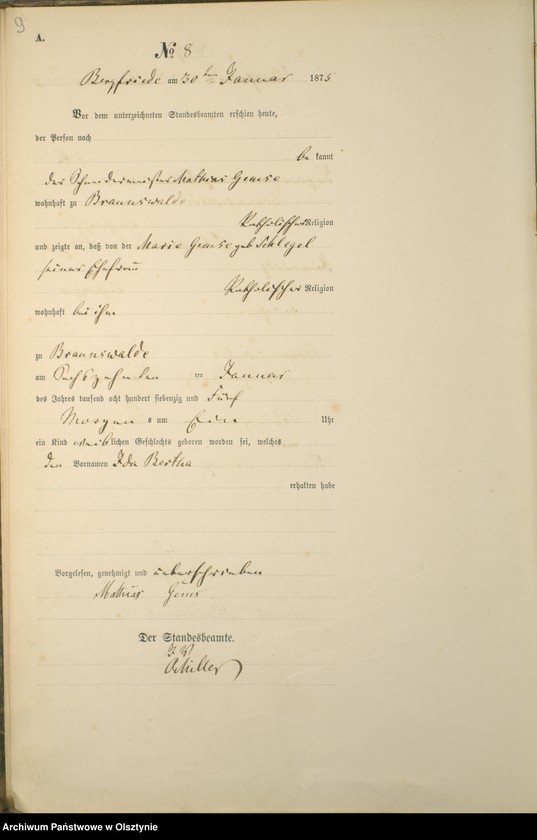 9
A.
No 8
Bergfriede am 30ten Januar 1875
Vor dem unterzeichneten Standesbeamten erschien heute,
der Person nach
be kannt
der Schneidermeister Mathias Gemse
wohnhaft zu Braunswalde
Katholischer Religion
und zeigte an, daß von der Marie Gemse geb Schlegel
seiner Ehefrau
Katholischer Religion
wohnhaft bei ihm
zu Braunswalde
am Sechszehnten ten Januar
des Jahres tausend acht hundert siebenzig und Fünf
Morgens um Ein Uhr
ein Kind weiblichen Geschlechts geboren worden sei, welches
den Vornamen Ida Bertha
erhalten habe
Vorgelesen, genehmigt und unterschrieben
Mathias Gems
Der Standesbeamte.
Archiwum Państwowe w Olsztynie